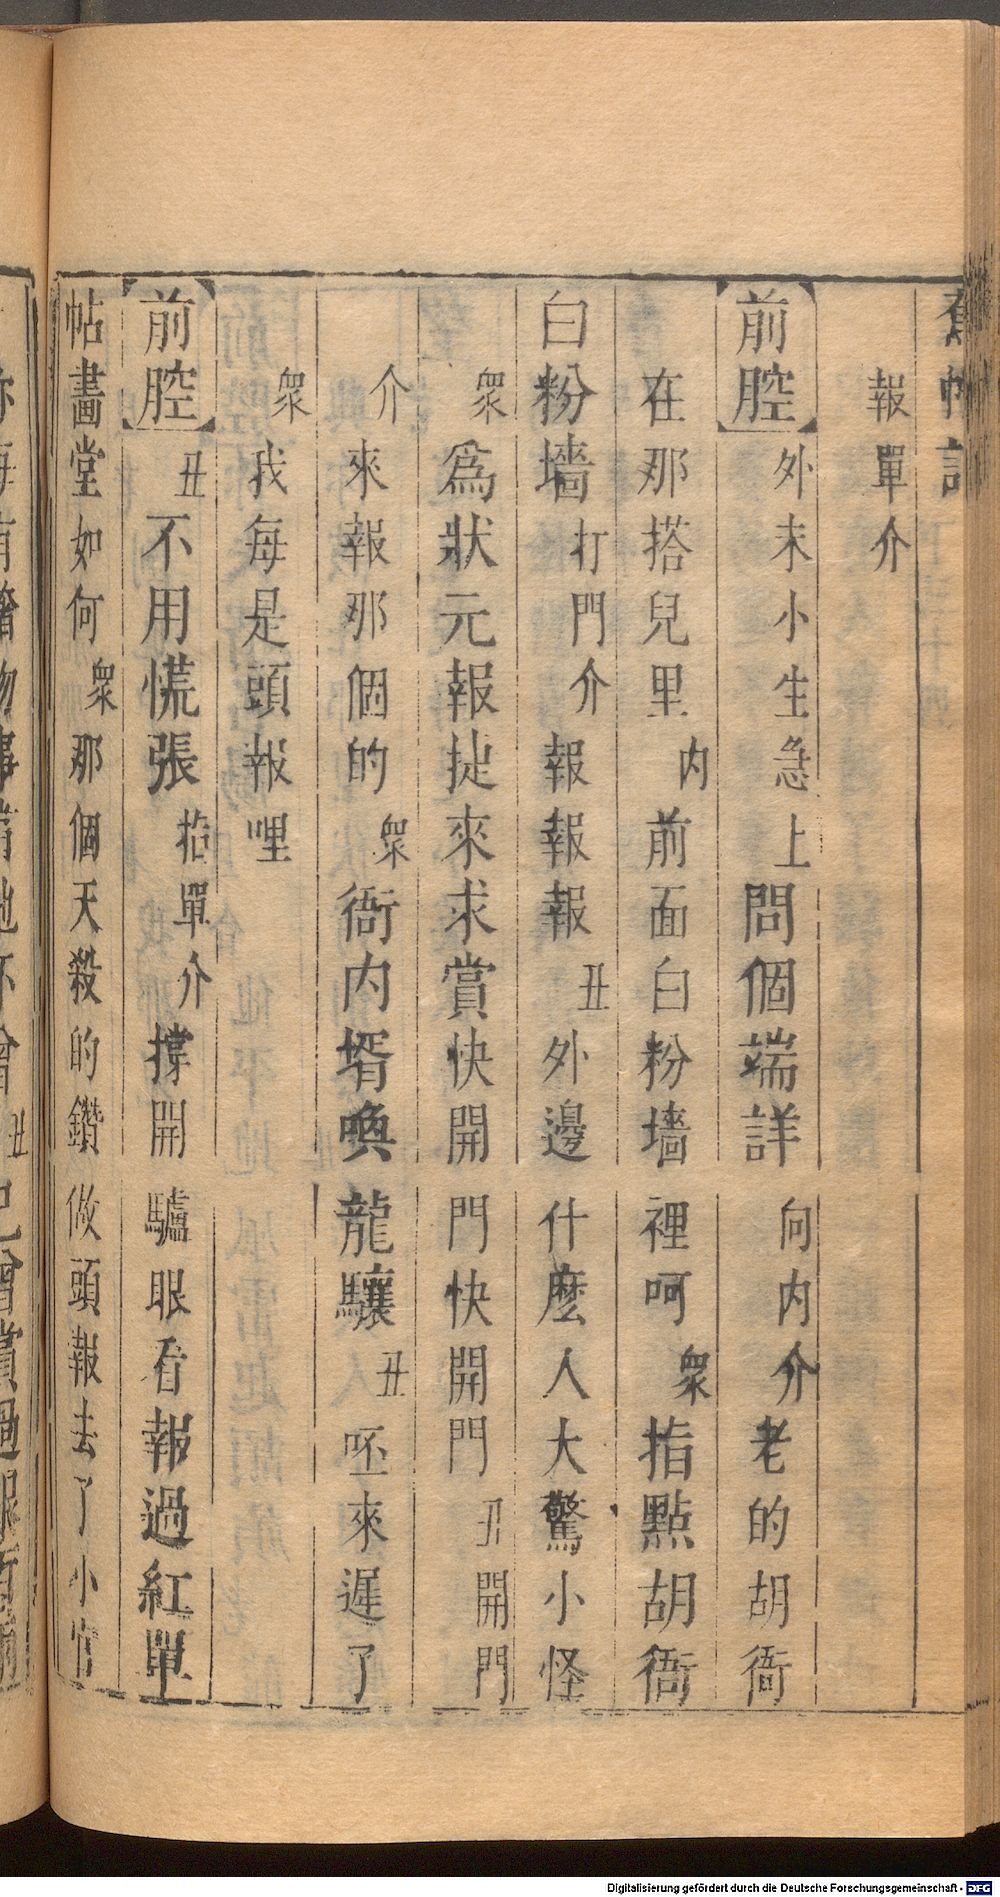 報單介
前腔 外末小生急上問個端詳向内介老的胡衙
在那搭兒里内前面白粉墻裡呵衆指點胡衙
白粉墻打門介報報報丑外邊什麽人大驚小怪
衆爲狀元報捷來求賞快開門快開門丑開門
介來報那個的衆衙内壻喚龍驤丑呸來遲了
衆我每是頭報哩
前腔 丑不用慌張拾單介撑開驢眼看報過紅單
帖畫堂如何衆那個天殺的鑽做頭報去了小官
Digitalisierung gefördert durch die Deutsche Forschungsgemeinschaft - DFG